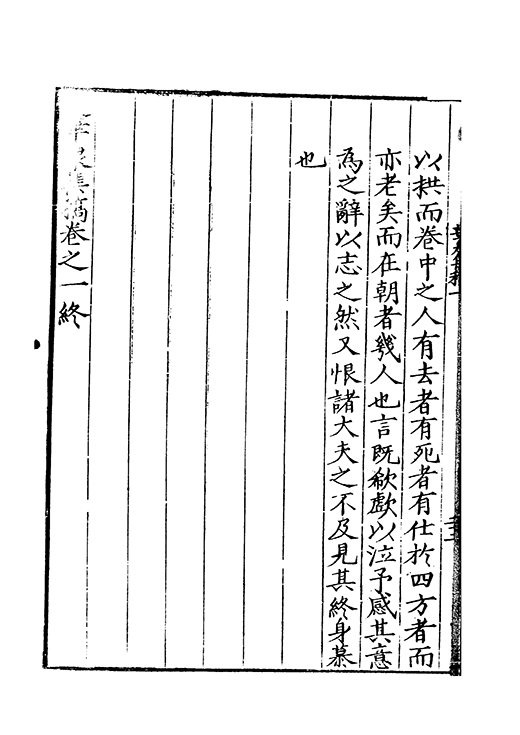 以拱而卷中之人有去者有死者有仕於四方者而
亦老矣而在朝者幾人也言既欷歔以泣予感其意
為之辭以志之然又恨諸大夫之不及見其終身慕
也
集摘卷之一終